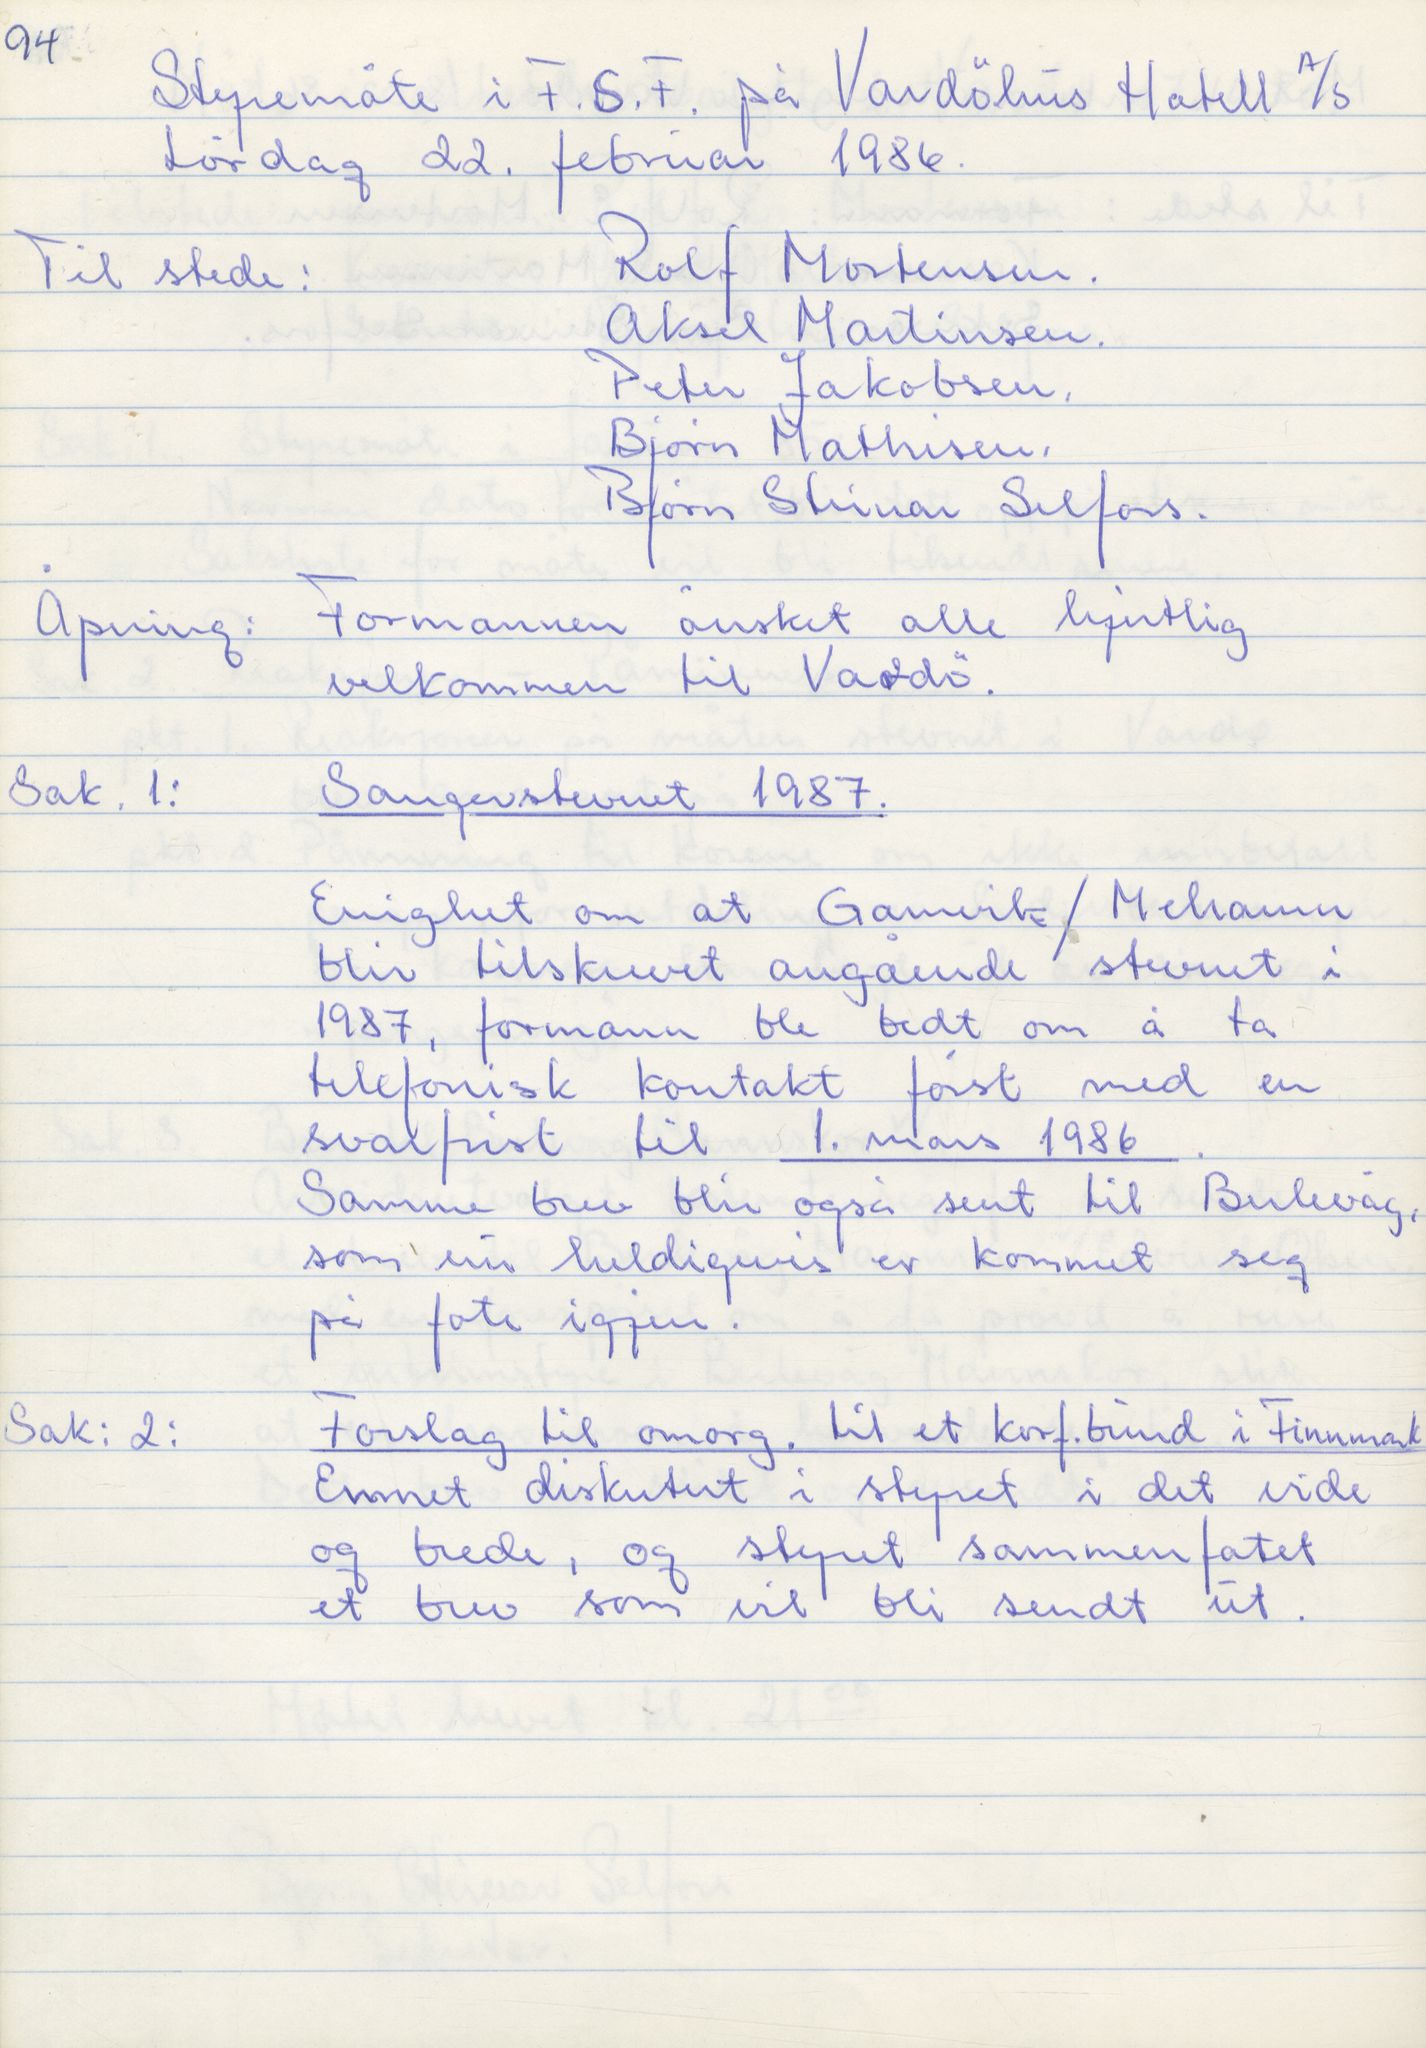 94
Styremöte i F.S.F. på Vardöhus Hotell A/S
Lördag 22. februar 1986.
Til stede: Rolf Mortensen.
Aksel Martinsen.
Peter Jakobsen.
Björn Mathisen.
Björn Steinar Selfors.
Åpning: Formannen önsket alle hjertlig
velkommen til Vardö.
Sak. 1: Sangerstevnet 1987.
Enighet om at Gamvik/Mehamn
blir tilskrevet angående stevnet i
1987, formann ble bedt om å ta
telefonisk kontakt först med en
svarfrist til 1. mars 1986.
Samme brev blir også sent til Berlevåg,
som nu heldigvis er kommet seg
på fote igjen.
Sak: 2: Forslag til omorg. til et korf.bund i Finnmark
Emnet diskutert i styret i det vide
og brede, og styret sammenfatet
et brev som vil bli sendt ut.